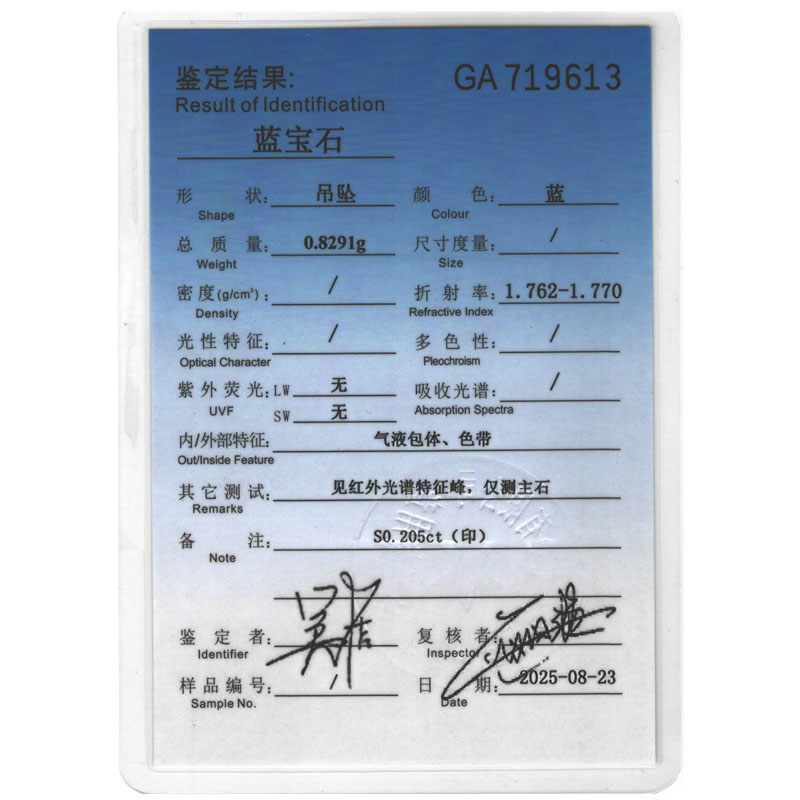 鉴定结果: GA 719613
Result of Identification
蓝宝石
形 状: 吊坠 颜 色: 蓝
Shape Colour
总 质 量: 0.8291g 尺寸度量: /
Weight Size
密度(g/cm³): / 折 射 率: 1.762-1.770
Density Refractive Index
光性特征: / 多 色 性: /
Optical Character Pleochroism
紫外荧光: LW 无 吸收光谱: /
UVF SW 无 Absorption Spectra
内/外部特征: 气液包体、色带
Out/Inside Feature
其它测试: 见红外光谱特征峰,仅测主石
Remarks
备 注: S0.205ct(印)
Note
鉴 定 者: 复 核 者:
Identifier Inspector
样品编号: / 日 期: 2025-08-23
Sample No. Date